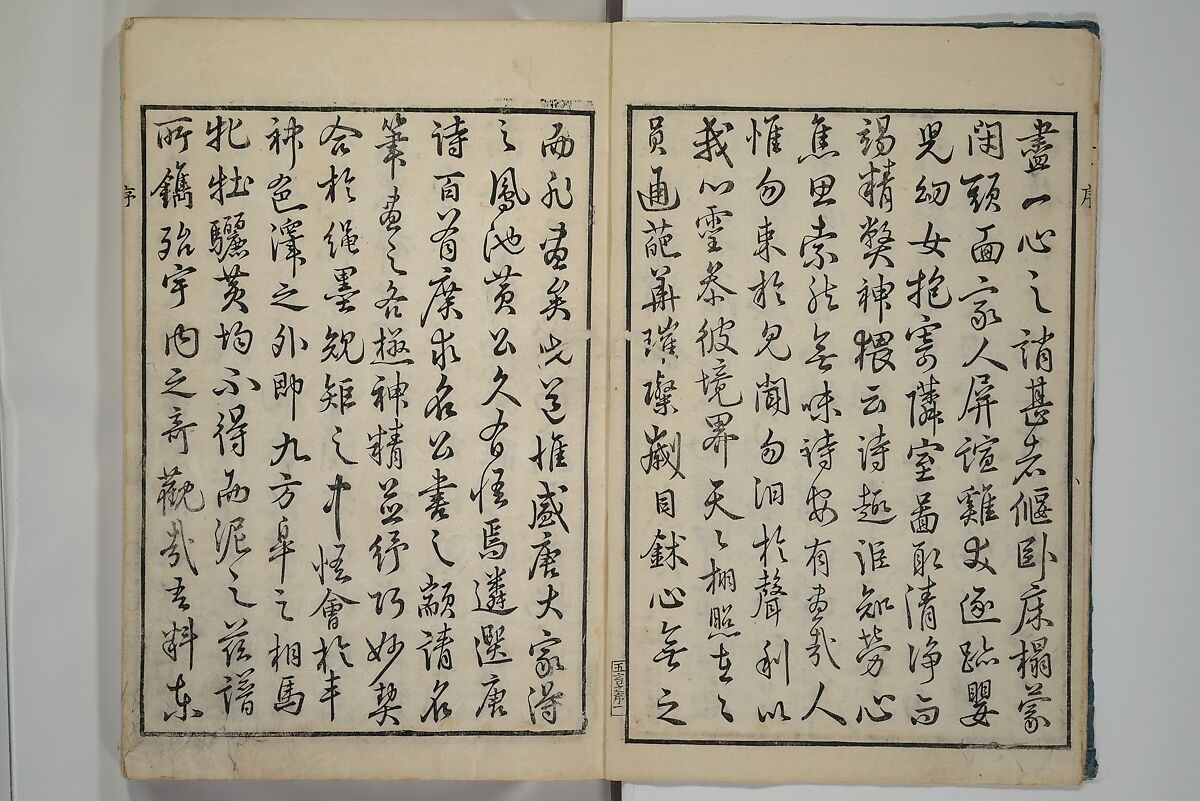 序
盡一心之誚甚者偃臥床榻蒙
閑頭面家人屏諠雞犬逐踮嬰
兒幼女抱寄隣室啚取清淨而
竭精獘神猥云詩趣誰知勞心
焦思索然無味詩安有畫哉人
惟勿束於見聞勿汨於聲利以
我心靈參彼境界天〻相照在〻
員通葩華璀璨劌目鉥心無之
五言序二
而非畫矣此道惟盛唐大家得
之鳳池黄公久有悟焉遴選唐
詩百首廣求名公書之顓請名
筆畫之各極神精並紓巧妙契
合於繩墨規矩之中悟會於丰
神色澤之外即九方臯之相馬
牝牡驪黄均不得而泥之茲譜
所鐫殆宇内之竒觀哉吾料東
序